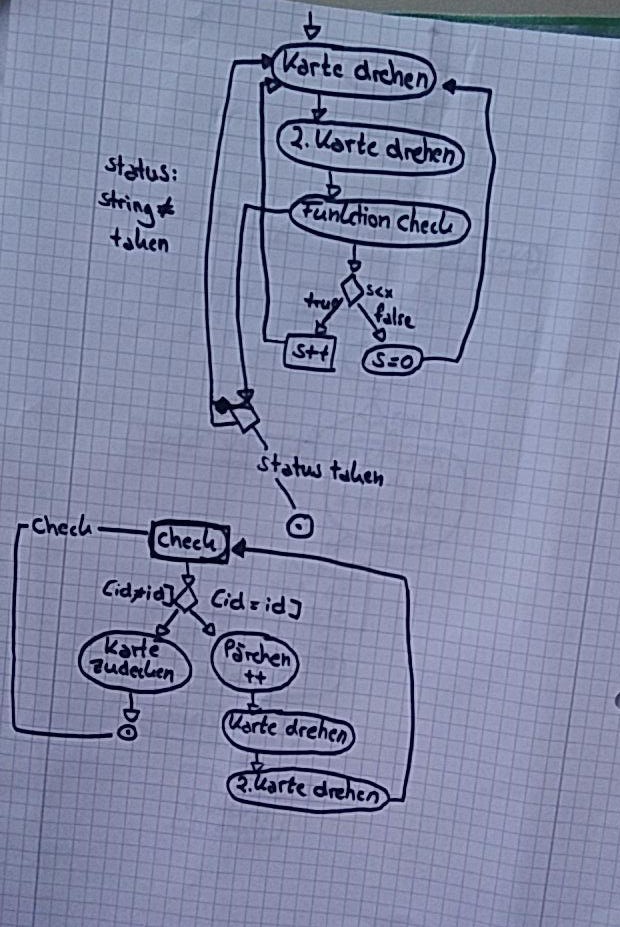 Karte drehen
2. Karte drehen
status:
string ≠
taken
Funktion check
s<x
true
false
s++
s=0
status taken
check
check
[id≠id]
[id = id]
Karte
zudecken
Pärchen
++
Karte drehen
2. Karte drehen